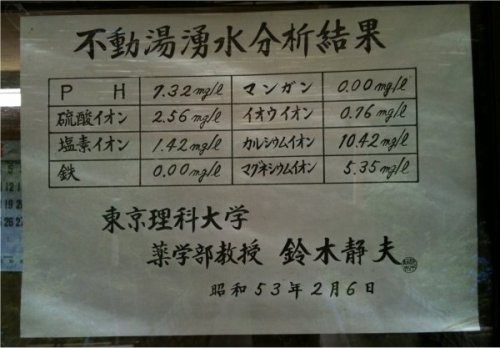 不動湯湧水分析結果
PH 7.32mg/l マンガン 0.00mg/l
硫酸イオン 2.56mg/l イオウイオン 0.76mg/l
塩素イオン 1.42mg/l カルシウムイオン 10.42mg/l
鉄 0.00mg/l マグネシウムイオン 5.35mg/l
東京理科大学
薬学部教授 鈴木静夫
昭和53年2月6日